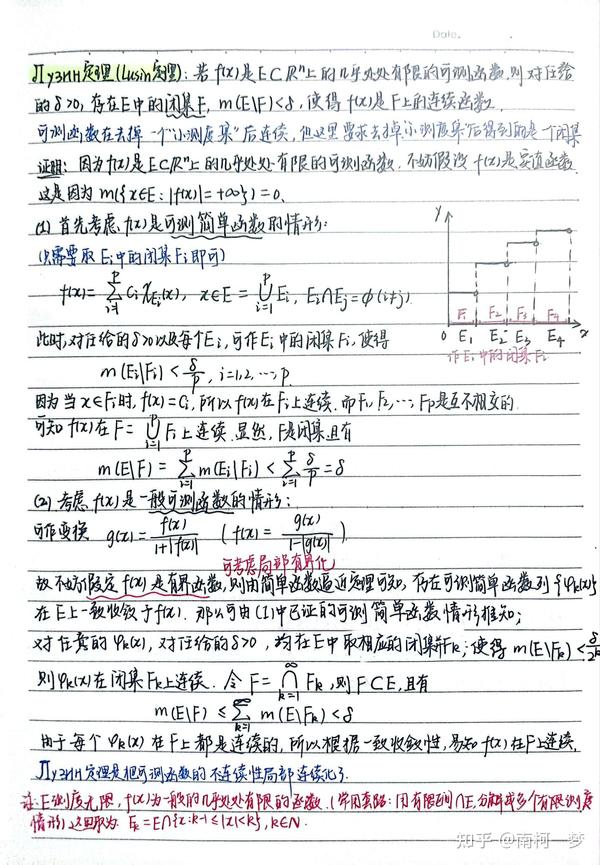 Date.
Лузин定理(Lusin定理): 若f(x)是E⊂ℝⁿ上的几乎处处有限的可测函数,则对任给
的δ>0,存在E中的闭集F, m(E\F)<δ,使得f(x)是F上的连续函数.
可测函数在去掉一个"小测度集"后连续,但这里要求去掉"小测度集"后得到的是一个闭集
证明: 因为f(x)是E⊂ℝⁿ上的几乎处处有限的可测函数.不妨假设f(x)是实值函数.
这是因为m({x∈E:|f(x)|=+∞})=0.
(1) 首先考虑f(x)是可测简单函数的情形:
(只需要取Eᵢ中的闭集Fᵢ即可)
f(x)=∑ᵢ₌₁ᵖ Cᵢχ_Eᵢ(x), x∈E=⋃ᵢ₌₁ᵖ Eᵢ, Eᵢ∩Eⱼ=ϕ(i≠j)
y
F₁ F₂ F₃ F₄
0 E₁ E₂ E₃ E₄ x
作Eᵢ中的闭集Fᵢ
此时,对任给的δ>0以及每个Eᵢ,可作Eᵢ中的闭集Fᵢ,使得
m(Eᵢ\Fᵢ)<δ/p, i=1,2,…,p
因为当x∈Fᵢ时,f(x)=Cᵢ,所以f(x)在Fᵢ上连续.而F₁,F₂,…,Fp是互不相交的.
可知f(x)在F=⋃ᵢ₌₁ᵖ Fᵢ上连续.显然,F是闭集且有
m(E\F)=∑ᵢ₌₁ᵖ m(Eᵢ\Fᵢ)<∑ᵢ₌₁ᵖ δ/p=δ
(2) 考虑f(x)是一般可测函数的情形:
可作变换 g(x)=f(x)/(1+|f(x)|) (f(x)=g(x)/(1-|g(x)|))
可考虑局部有界化
故不妨假定f(x)是有界函数,则由简单函数逼近定理可知,存在可测简单函数列{φₖ(x)}
在E上一致收敛于f(x).那么可由(1)中已证的可测简单函数情形推知;
对任意的φₖ(x),对任给的δ>0,均在E中取相应的闭集Fₖ;使得m(E\Fₖ)<δ/2ᵏ
则φₖ(x)在闭集Fₖ上连续.令F=⋂ₖ₌₁^∞ Fₖ,则F⊂E,且有
m(E\F)≤∑ₖ₌₁^∞ m(E\Fₖ)<δ
由于每个φₖ(x)在F上都是连续的,所以根据一致收敛性,易知f(x)在F上连续.
Лузин定理是把可测函数的不连续性局部连续化了.
注:E测度无限,f(x)为一般的几乎处处有限的函数.(常用套路:用有限区间∩E,分解成多个有限测度
情形)这里取为Eₖ=E∩{x:k-1≤|x|<k},k∈N.
知乎 @南柯一梦